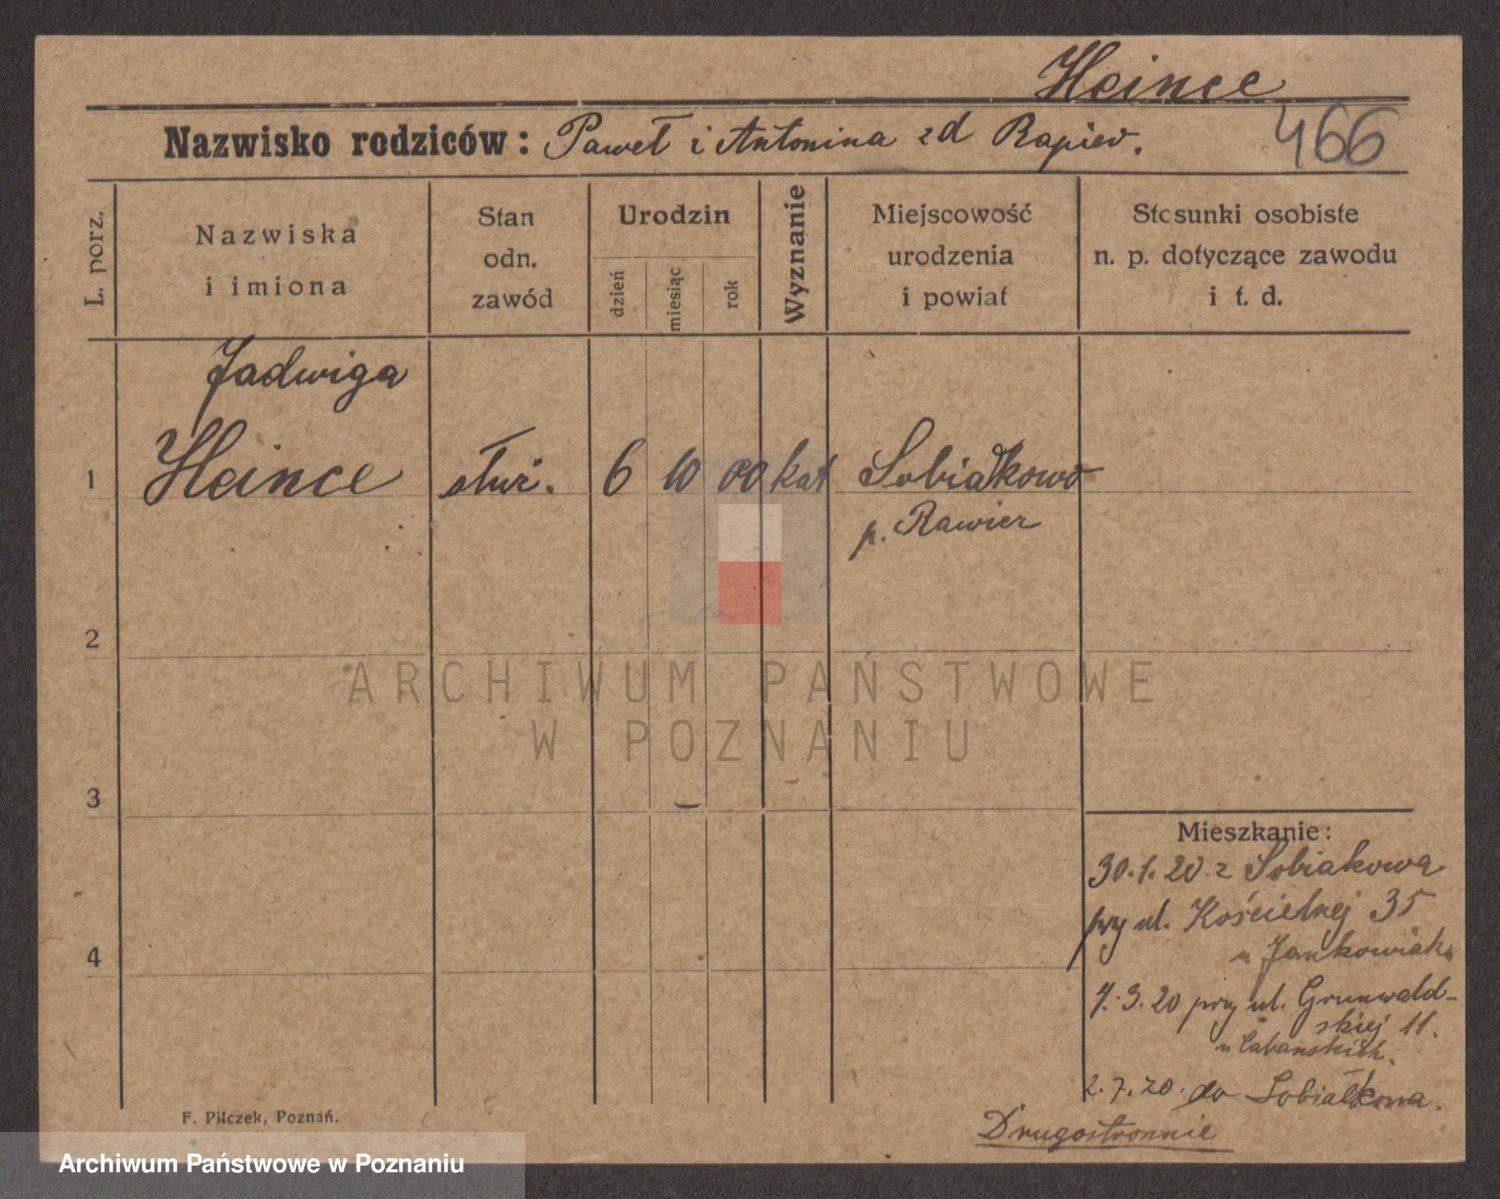 Heince
Nazwisko rodziców: Paweł i Antonina zd Rapier.
466
L. porz.
Nazwiska
i imiona
Stan
odn.
zawód
Urodzin
dzień
miesiąc
rok
Wyznanie
Miejscowość
urodzenia
i powiat
Stosunki osobiste
n. p. dotyczące zawodu
i t. d.
Jadwiga
1 Heince służ. 6 10 00 kat Sobiałkowo
p. Rawicz
2
ARCHIWUM PAŃSTWOWE
W POZNANIU
3
Mieszkanie:
30.1.20 z Sobiakowa
przy ul. Kościelnej 35
u Jankowiaka
4
4.3.20 przy ul. Grunwald-
skiej 11.
u
2.7.20. do Sobiałkowa.
Drugostronnie
F. Pilczek, Poznań.
Archiwum Państwowe w Poznaniu